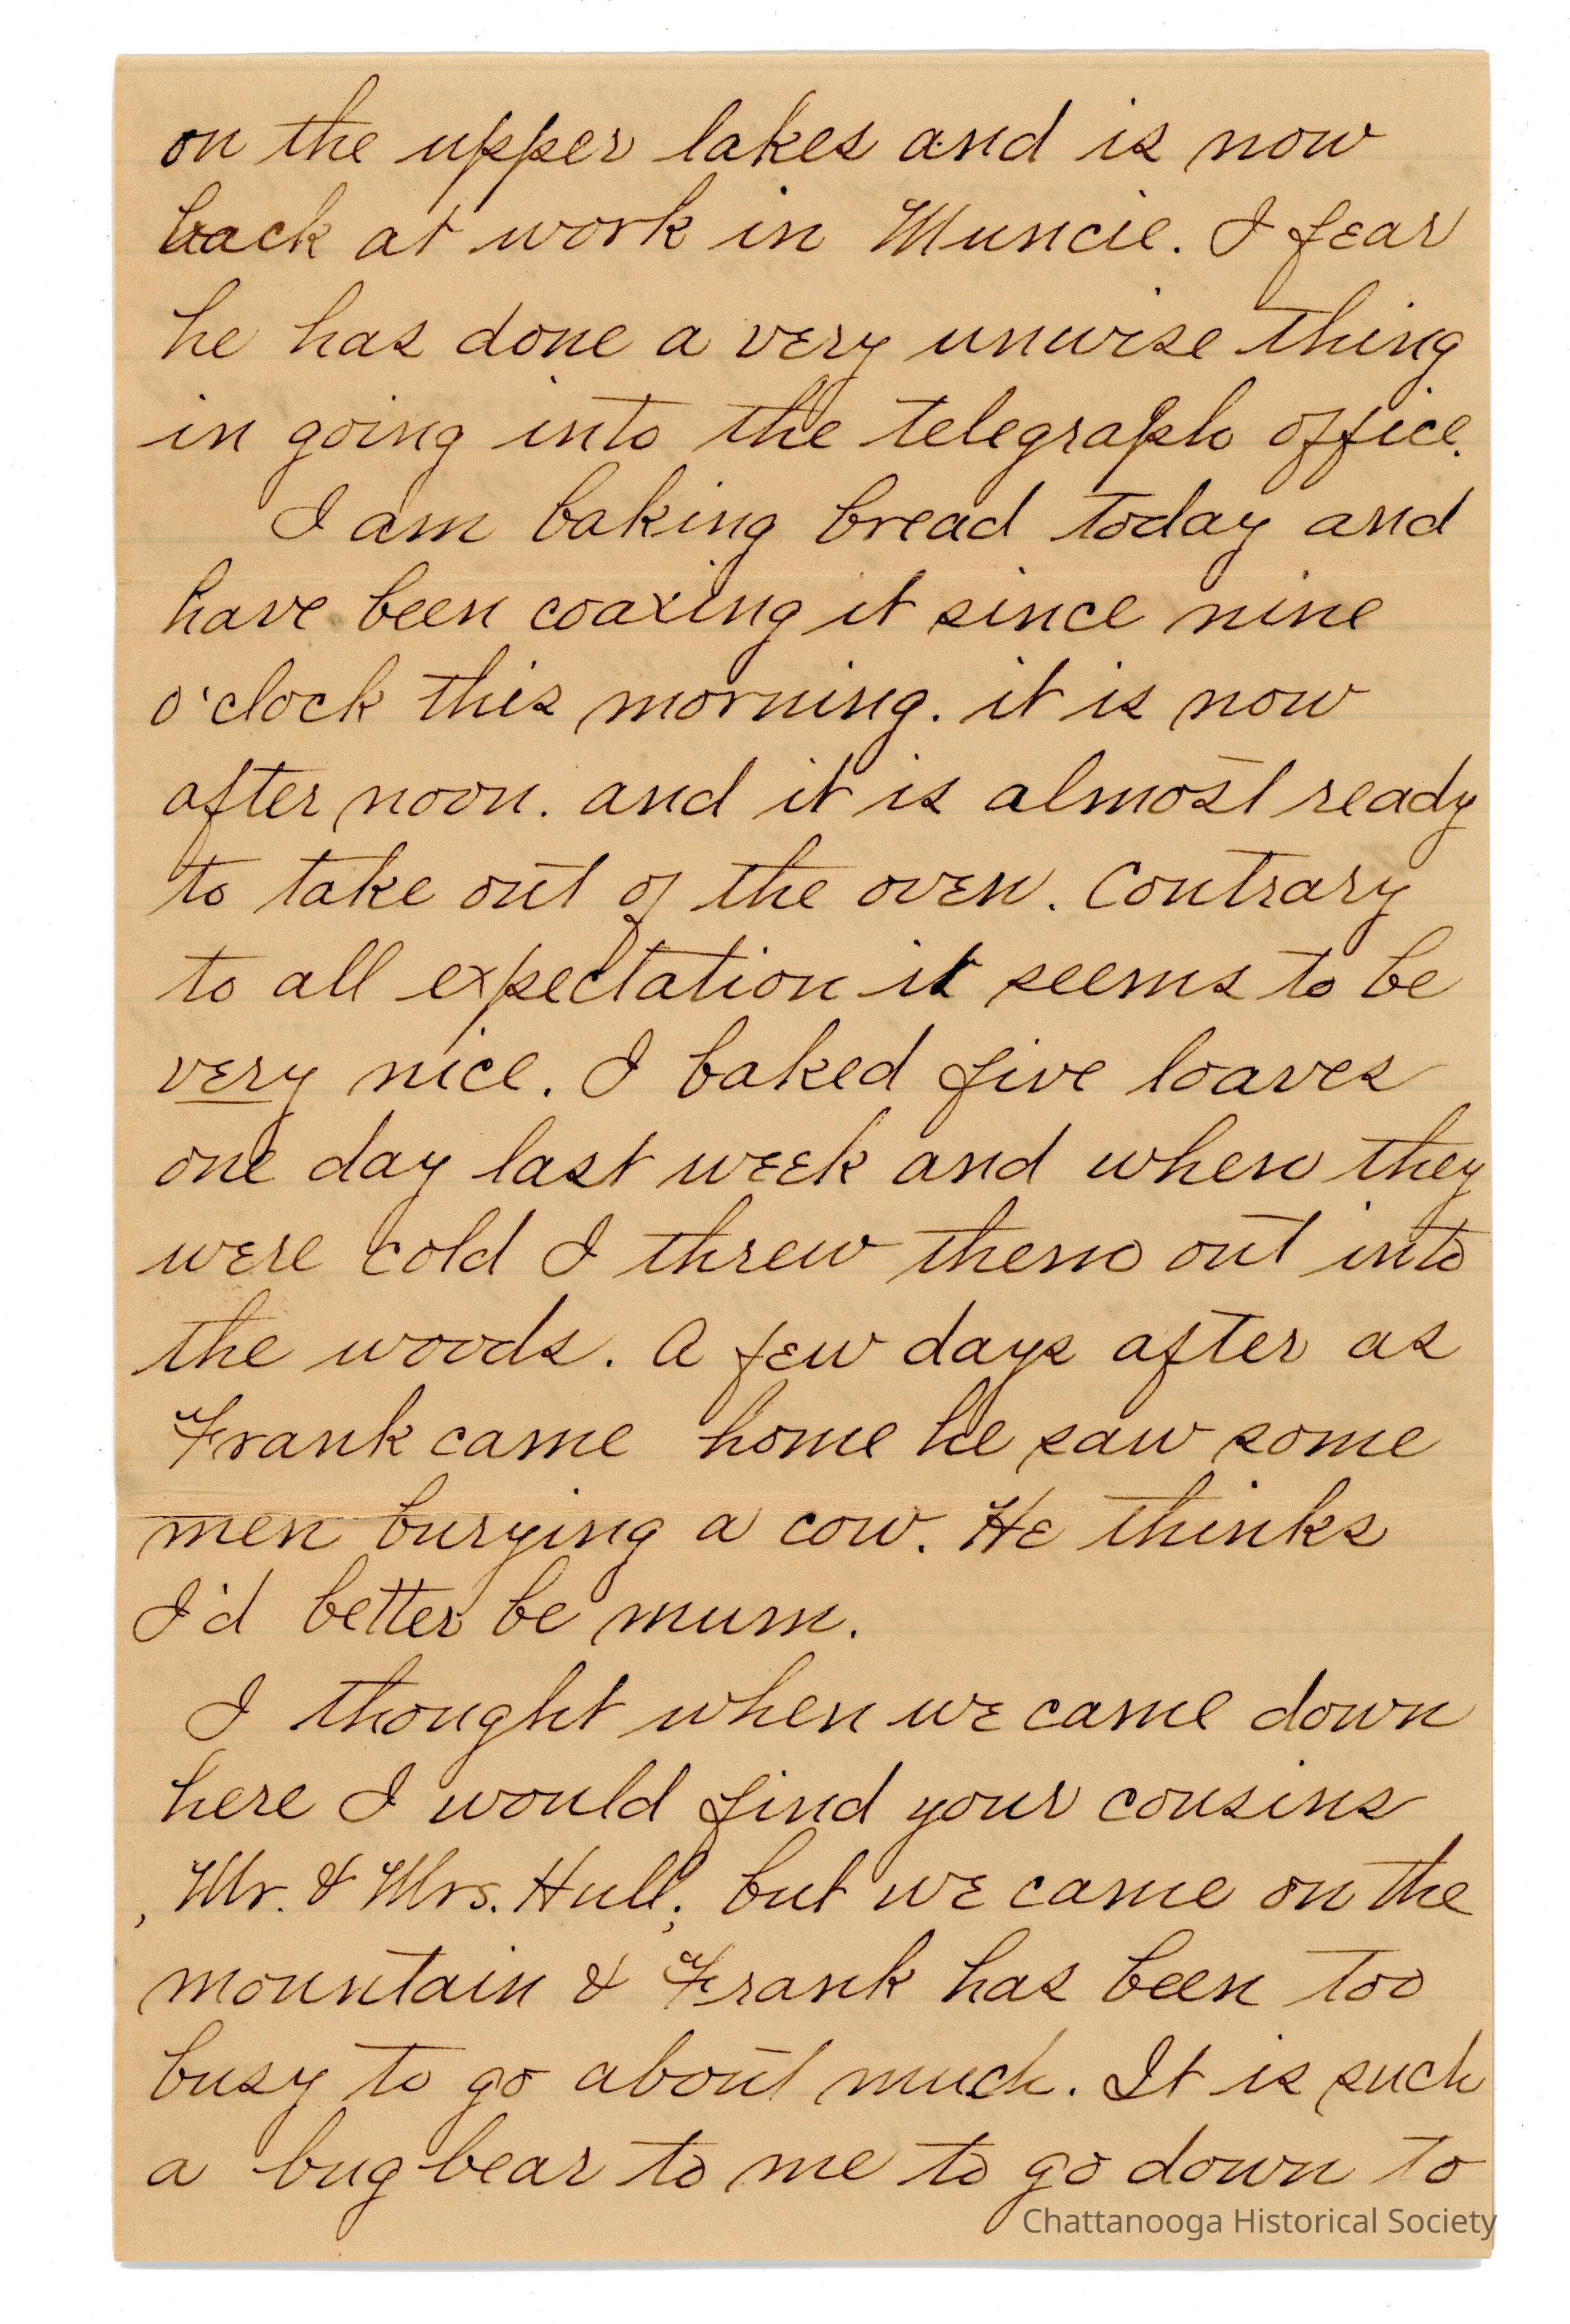 on the upper lakes and is now
back at work in Muncie. I fear
he has done a very unwise thing
in going into the telegraph office.
I am baking bread today and
have been coaxing it since nine
o'clock this morning. it is now
after noon. and it is almost ready
to take out of the oven. Contrary
to all expectation it seems to be
very nice. I baked five loaves
one day last week and when they
were cold I threw them out into
the woods. A few days after as
Frank came home he saw some
men burying a cow. He thinks
I'd better be mum.
I thought when we came down
here I would find your cousins
, Mr. & Mrs. Hull, but we came on the
mountain & Frank has been too
busy to go about much. It is such
a bugbear to me to go down to
Chattanooga Historical Society